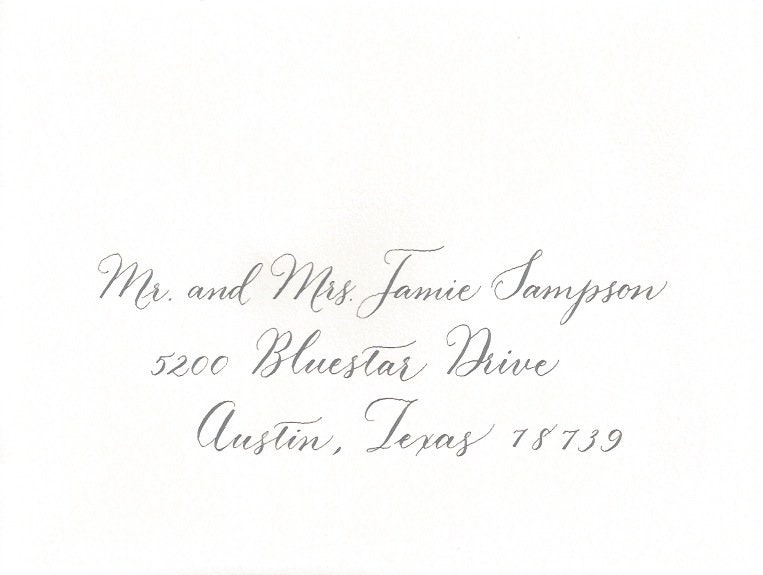 Mr. and Mrs. Jamie Sampson
5200 Bluestar Drive
Austin, Texas 78739